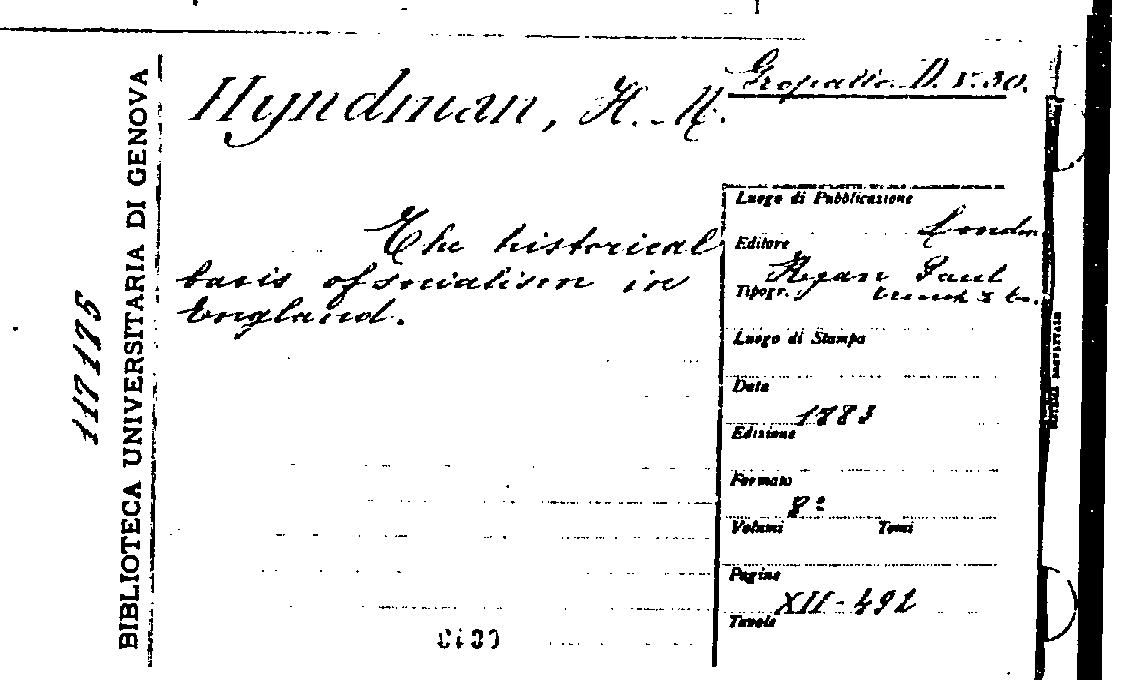 Gropallo D. V. 30.
Hyndman, H. M.
The historical
basis of socialism in
England.
Luogo di Pubblicazione
London
Editore
Kegan Paul
Tipogr.
trench & Co.
Luogo di Stampa
Data
1883
Edizione
Formato
8º
Volumi Tomi
Pagine
XII-492
Tavole
BIBLIOTECA UNIVERSITARIA DI GENOVA
117175